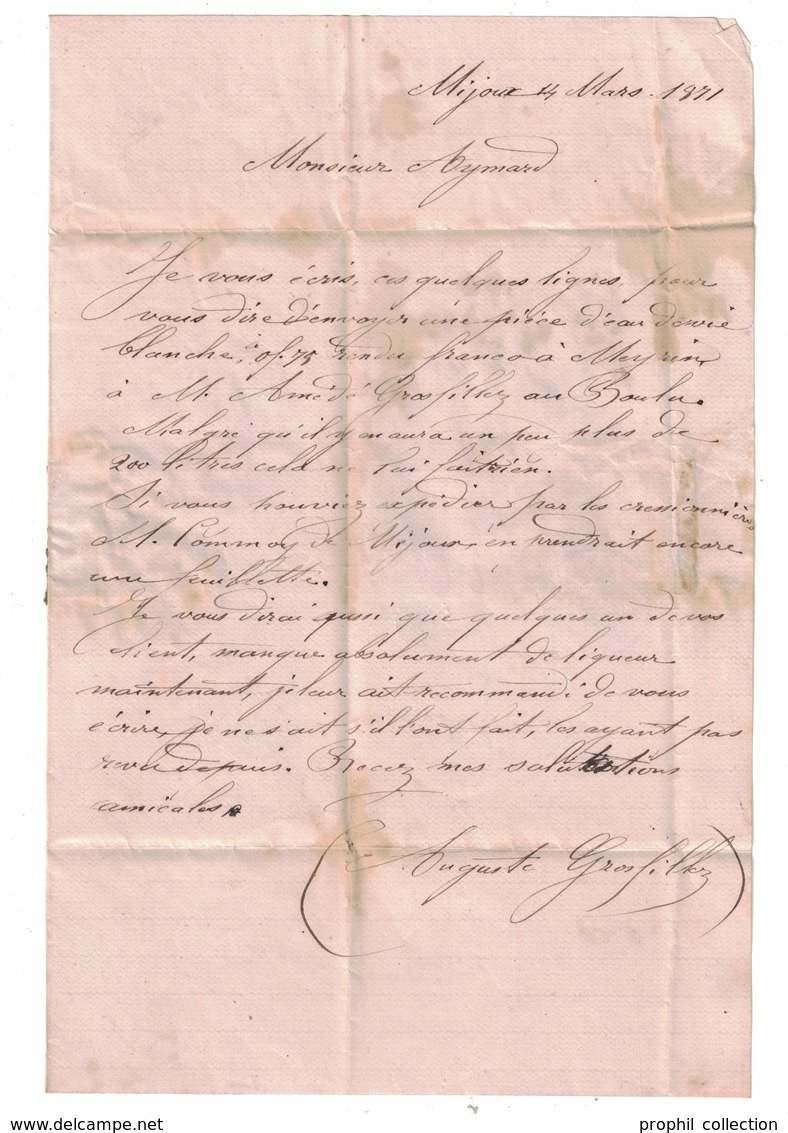 Mijoux 14 Mars 1871
Monsieur Aymard
Je vous écris, ces quelques lignes, pour
vous dire d'envoyer une pièce d'eau de vie
blanche, à 0f.75 rendu franco à Meyrin,
à M. Amédé Grosfillez au Boulu.
Malgré qu'il y en aura un peu plus de
200 litres cela ne lui fait rien.
Si vous pouviez expédier par les
M. Commoy de Mijoux, en prendrait encore
une feuillette.
Je vous dirai aussi que quelques un de vos
client, manque absolument de liqueur
maintenant, je leur ait recommandé de vous
écrire, je ne s'ait s'il l'ont fait, les ayant pas
revu depuis. Recez mes salutations
amicales.
Auguste Grosfillez
delcampe.net
prophil collection